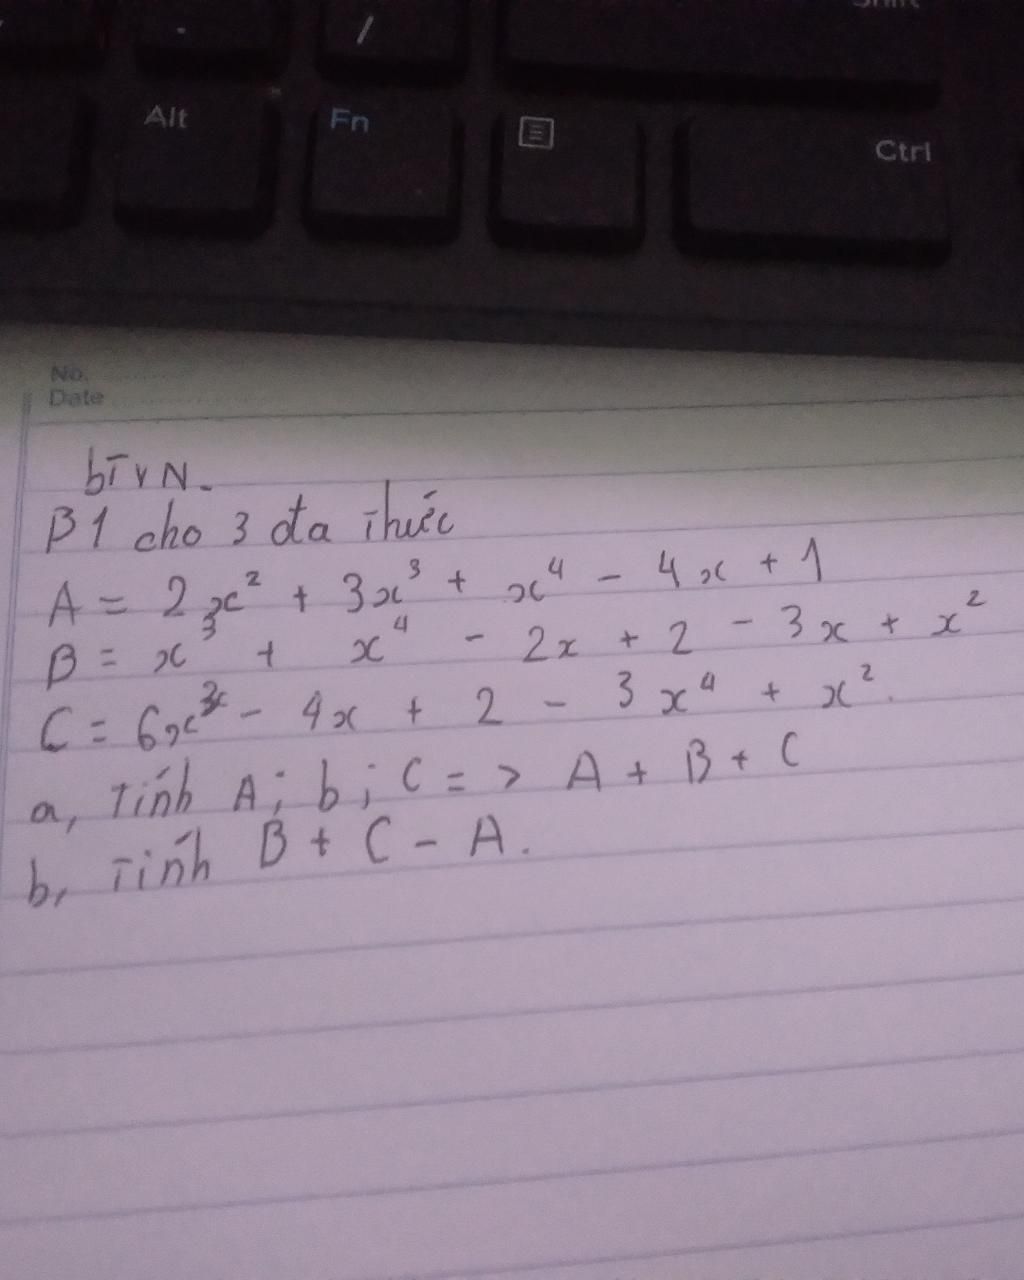 Shift
/
Alt Fn Ctrl
No.
Date
bTVN.
B1 cho 3 đa thức
A = 2x² + 3x³ + x⁴ - 4x + 1
B = x³ + x⁴ - 2x + 2 - 3x + x²
C = 6x³ - 4x + 2 - 3x⁴ + x².
a, Tính A; b; C = > A + B + C
b, Tính B + C - A.